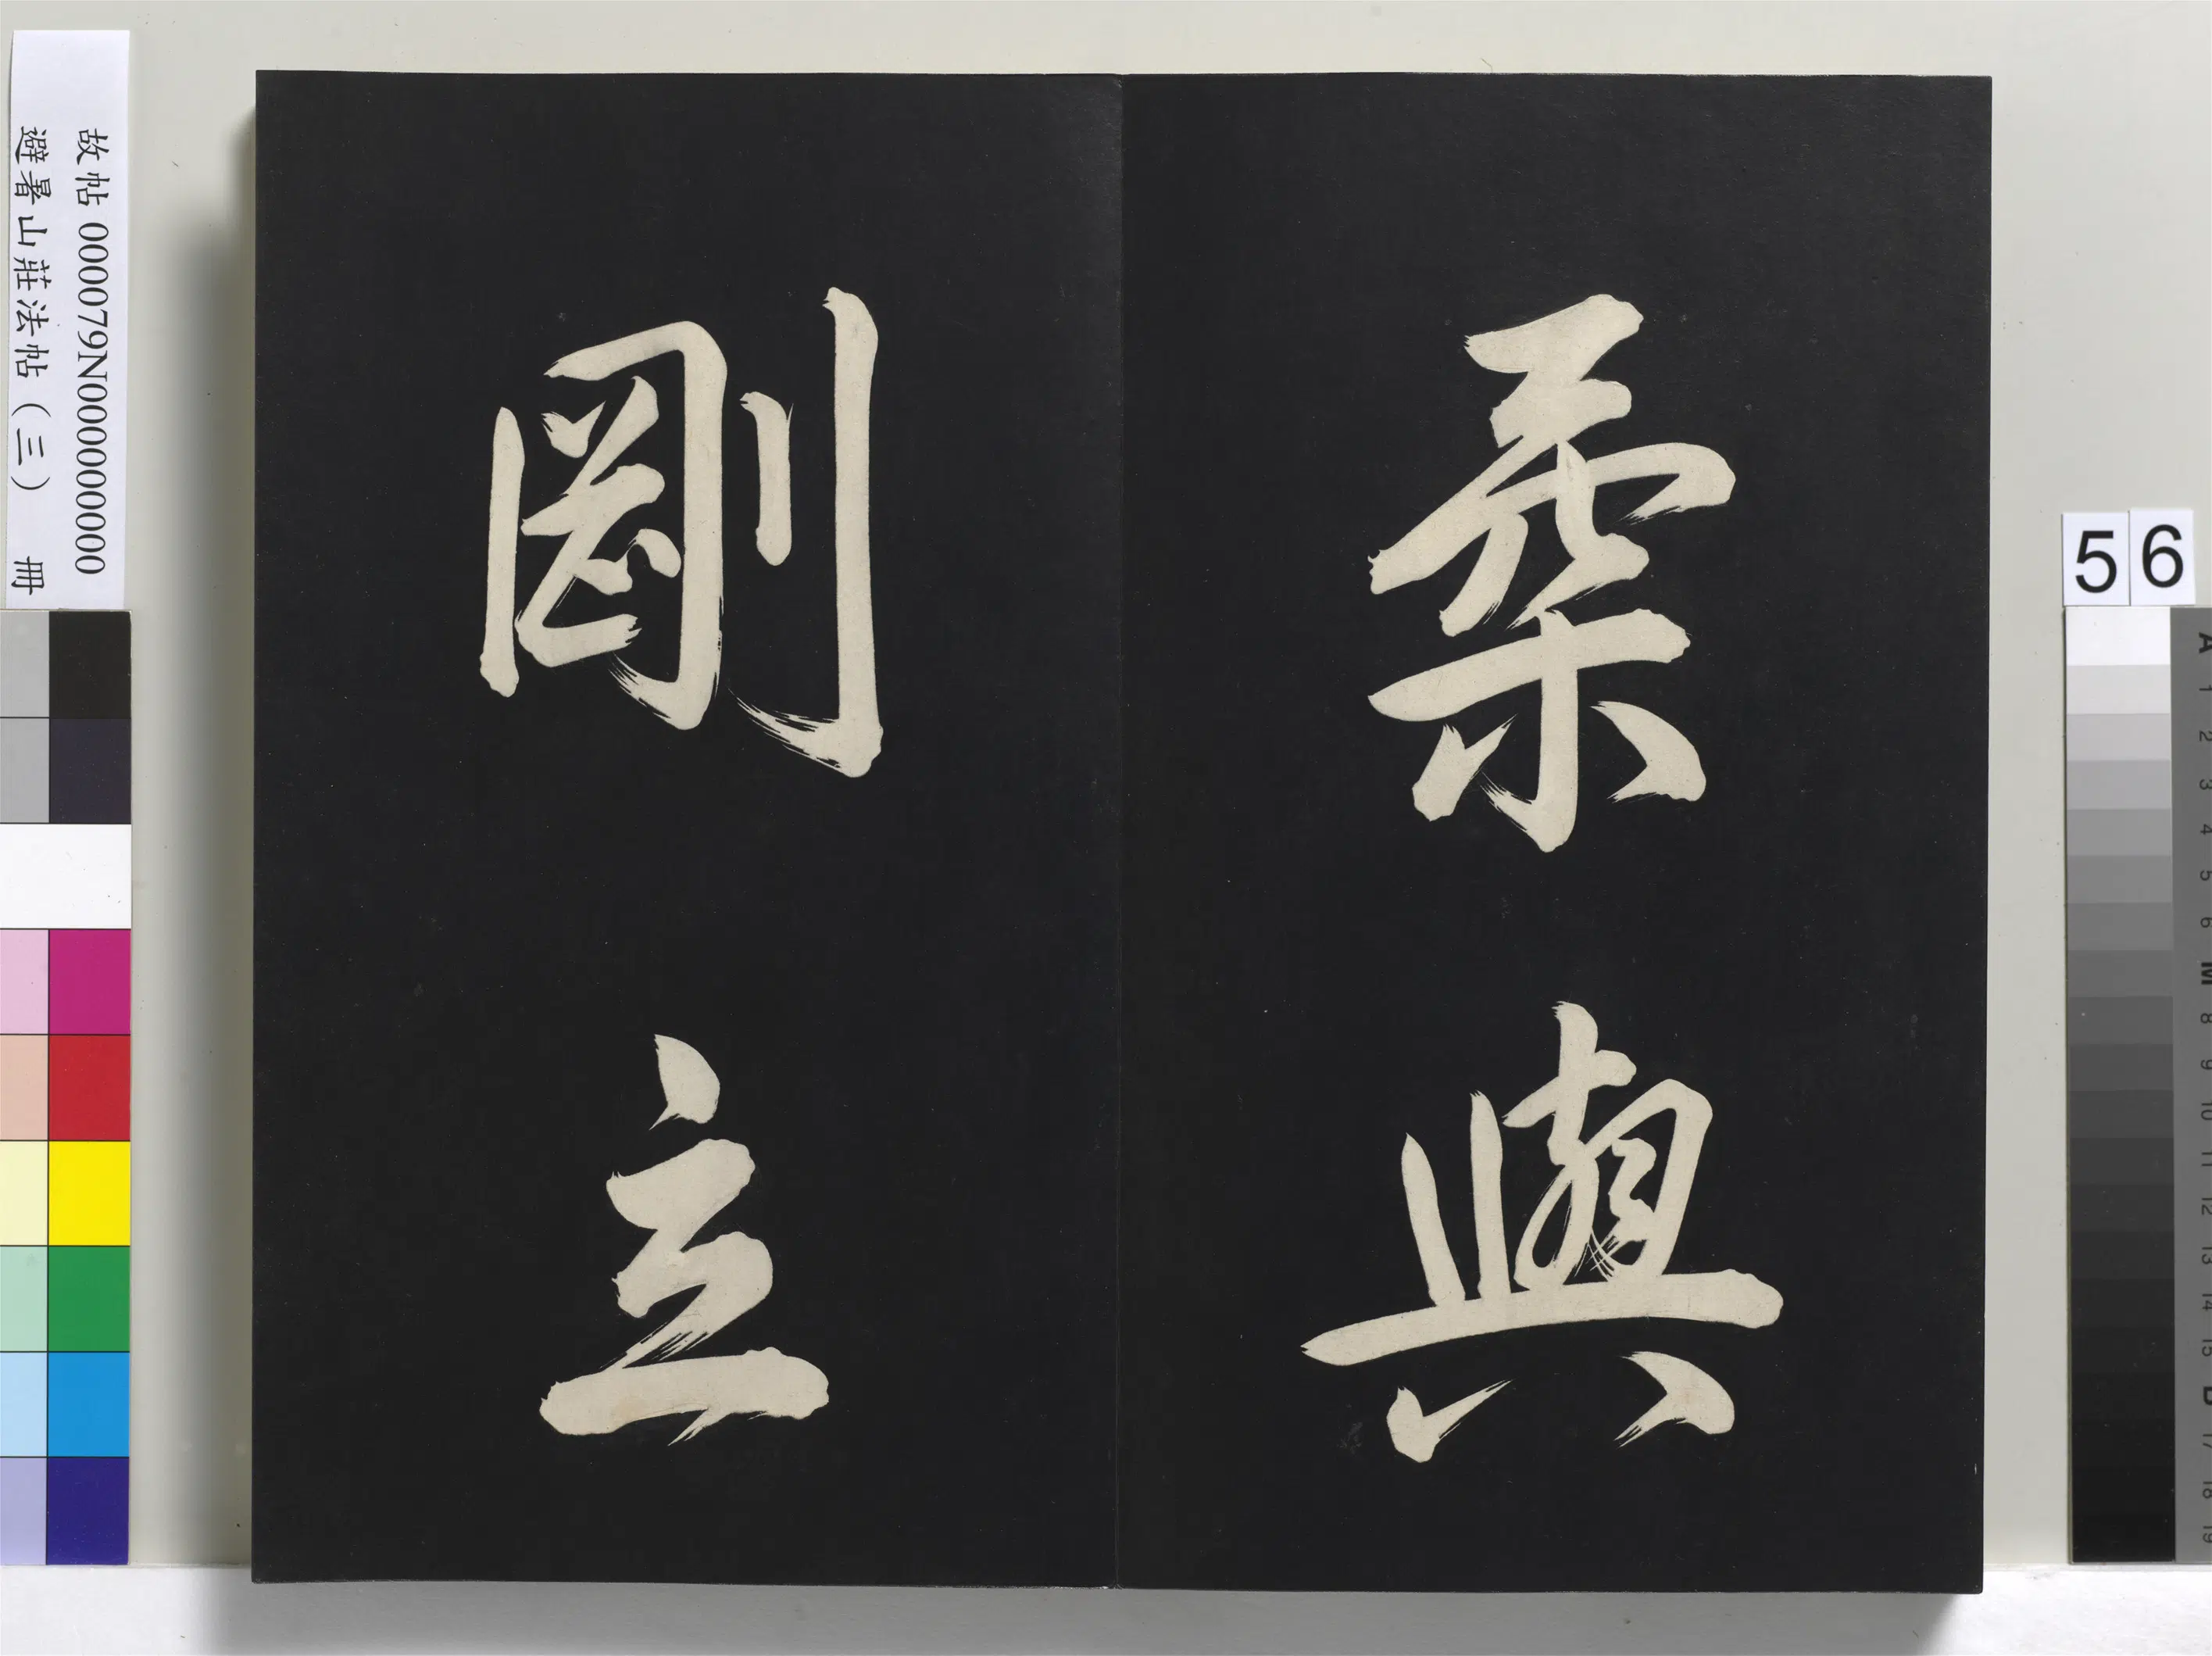 柔與
剛立
故帖 000079N000000000
避暑山莊法帖（三） 冊
56
A 1 2 3 4 5 6 M 8 9 10 11 12 13 14 15 B 17 18 19